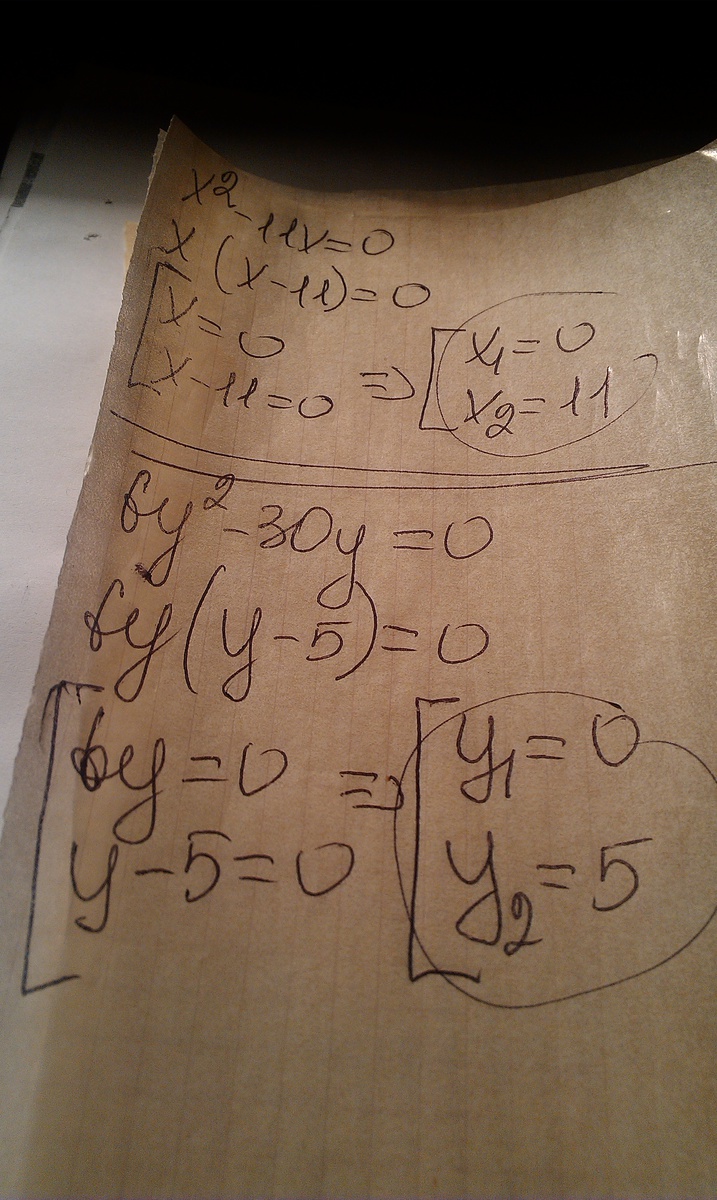 x² - 11x = 0
x (x - 11) = 0
[ x = 0
x - 11 = 0 => [ x₁ = 0
x₂ = 11
6y² - 30y = 0
6y (y - 5) = 0
[ 6y = 0 => [ y₁ = 0
y - 5 = 0 y₂ = 5